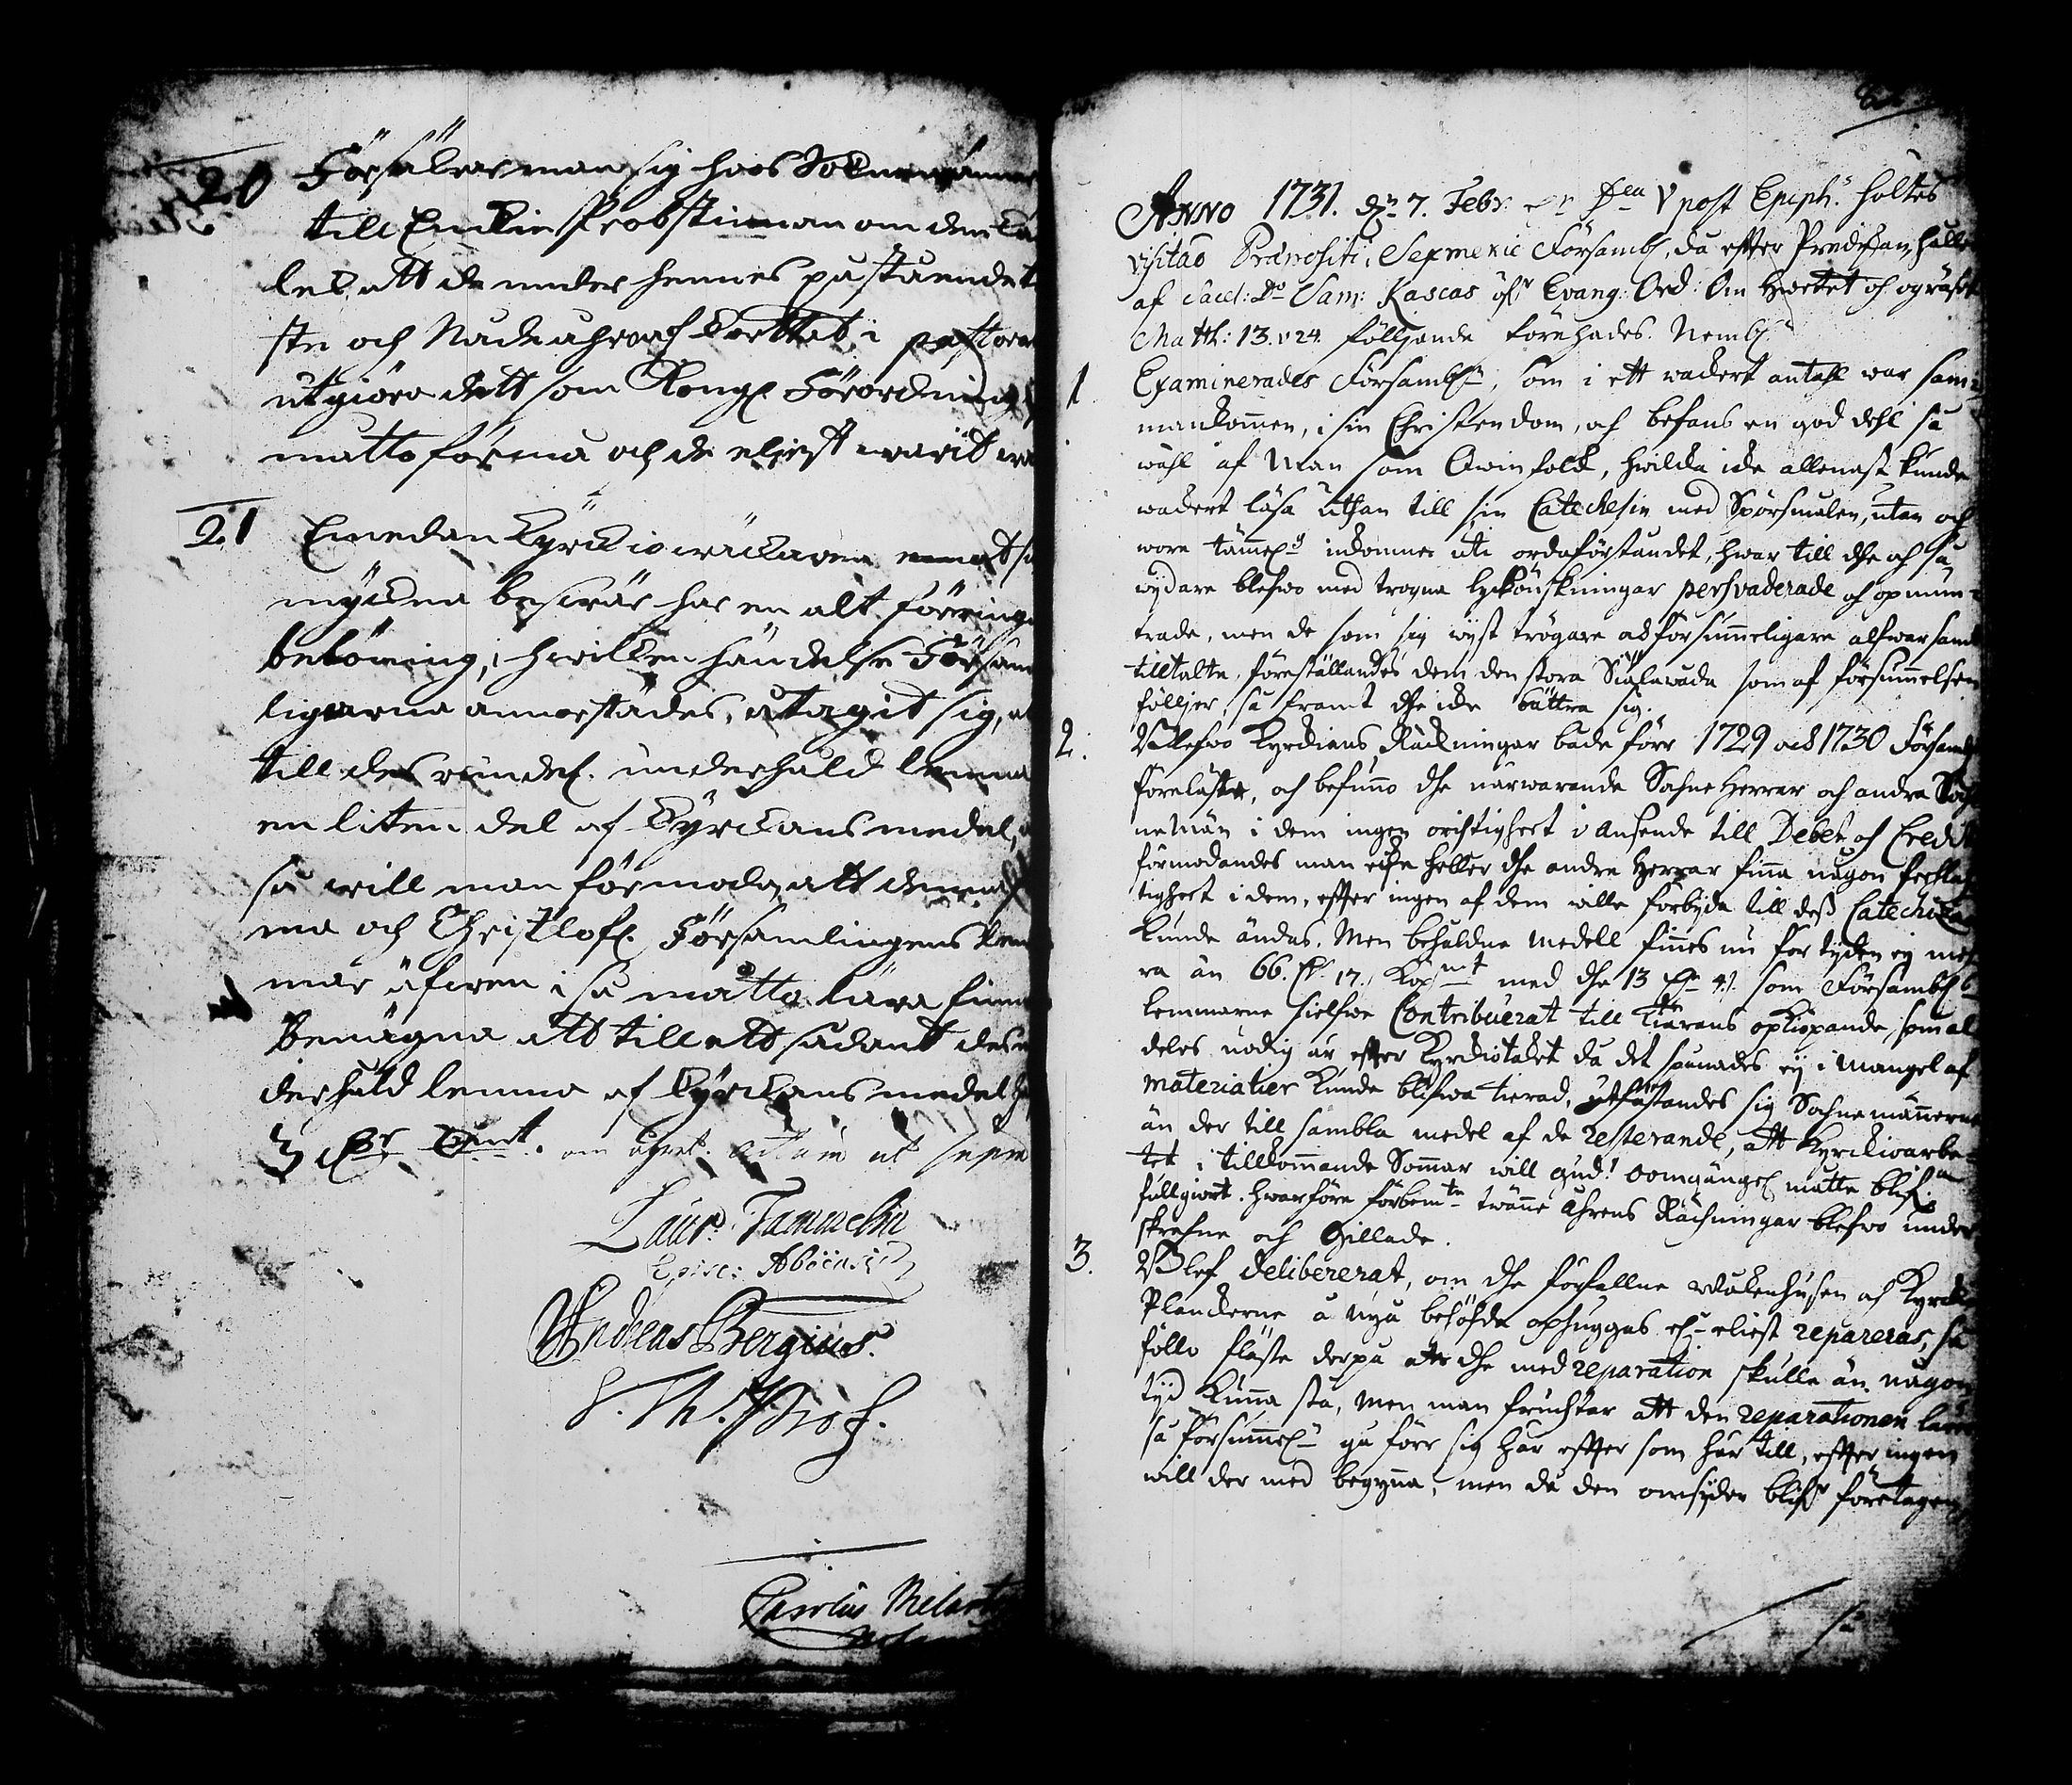 20 Försäkrar man sig hoos Sokne männer
till Enkie Probstinnan om den
les att de under hennes påstående
ste och Nådeåhr och i pastora
utgiöra dett som Kongl Förordning
måtto förmå och de eliest warit
21 Emedan Kyrckiowäckaren
myckna beswär har en alt för ringa
belöning, i hwilken händelse Försam
lingarne annorstädes, åtagit sig,
till des underhåld lemna
en liten del af Kyrckans medel,
så will man förmoda, att denna
na och Christlofl. Församlingens Lem
mar äfwen i så måtto lära finna
benägna att till ett sådant des un
derhåld lemna af Kyrckans medel
3 Dlr Kmt. om åhret. actum ut supra
Laur. Tammelin
Episc: Aboënsis
Andreas Bergius.
S. Th. Prof.
Carolus Melart
Anno 1731. d. 7. Febr. V post Epiph. holtes
visitao Præpositi i Sexmekie Församl, då effter Predikan, hållen
af Sacel: Do Sam: Kascas öfr Evang: Ord: Om Hwetet och ogräset
Matth: 13. v 24. fölljande förehades. Neml.
1 Examinerades Församln, som i ett wackert antahl war sam-
mankommen, i sin Christendom, och befans en god dehl så
wähl af Man som Qwinfolck, hwilcka icke allenast kunde
wackert läsa uthan till sin Catechesin med Spörsmålen, utan och
wore tämmel. inkomne uti ordaförståndet, hwar till dhe och så
wijdare blefwo med trogna lyckönskningar persvaderade och opmun-
trade, men de som sig wist trögare och försummeligare alfwarsamt
tilltalte, föreställandes dem den stora Siälawåda som af försummelsen
föllier, så framt dhe icke bättra sig.
2. Blefwo Kyrckians Räckningar både förr 1729 och 1730 Församl
föreläste, och befunno dhe närwarande Sochne Herrar och andra Soch
nemän i dem ingen orichtighet i anseende till Debet och Credit
förmodandes man icke heller dhe andre Herrar finna någon fechlach
tighet i dem, effter ingen af dem wille förbijda till dess Catechizan
kunde ändas. Men behåldne medell finnes nu för tyden ej me
ra än 66. 17. Kopmt med dhe 13 4. som Församl
lemmarne sielfwe Contribuerat till tiärans opkiöpande, som al
deles nödig är effter Kyrckiotaket då det spånades ej i mangel af
materialier kunde blifwa tierad, utfästandes sig Sochnemännerne
än der till sambla medel af de resterande, att Kyrckioarbe-
tet i tillkommande Sommar will Gud! oomgängel måtte blifwa
fullgiort. hwarföre förbemte tränne åhrens Räckningar blefwo under
skrefne och Gillade.
3. Blef delibererat, om dhe förfallne Wakenhusen af Kyrckio
Planckerne å nya behöfde ophuggas el eliest repareras, så
föllo flästa derpå att dhe med reparation skulle än någon
tijd kunna stå, men man fruchtar att den reparationen lärer
så försummel. gå förr sig här effter som här till, effter ingen
will der med begynna, men då den omsijder blifr företagen,
så